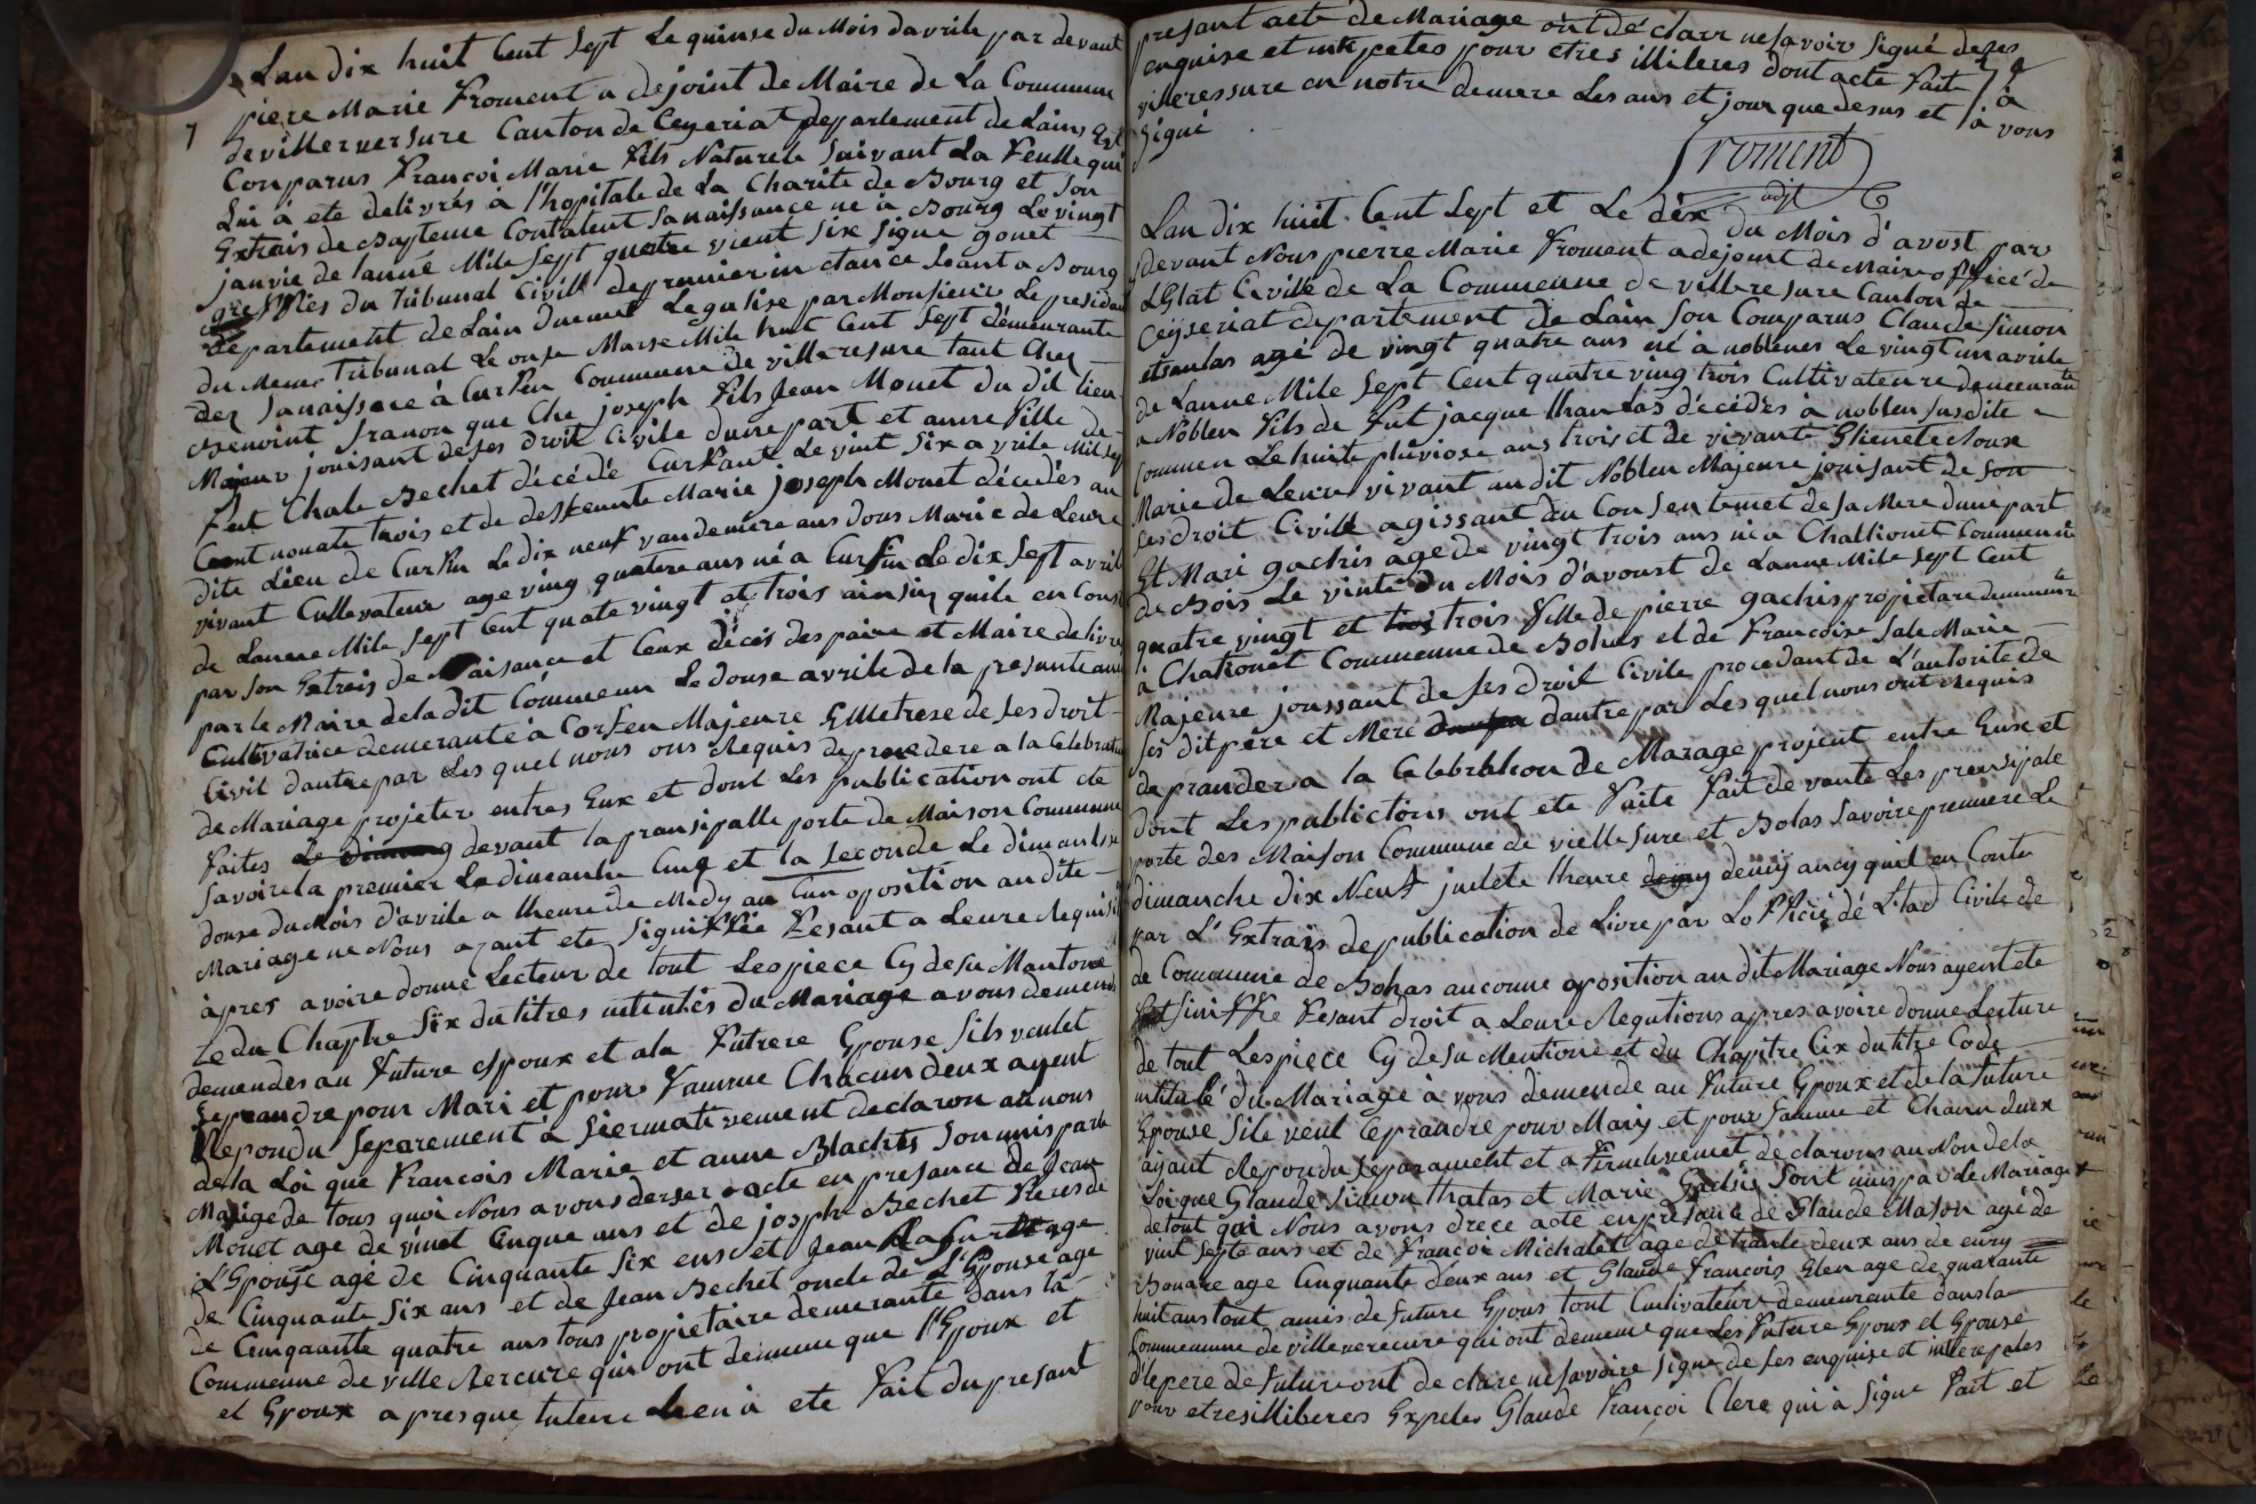 Lan dix huit Cent Sept Le quinse du Mois davrile par devant
piere Marie Froment a dejoint de Maire de La Commune
7
de villerversure Canton de Ceyeriat departement de Lains Est
Conparus Francoi Marie Fils Naturele Suivant La Feulle qui
Lui à ete delivrés à l'hopitale de La Charite de Bourg et Son
Extrais de Bapteme Contatent Sa naissance ne à Bourg Le vingt
janvie de lanné Mile Sept quatre vient Six Signe gouet
greffies du Tribunal Civill de premier in stance Seant a Bourg
Departement de Lain duement Legalise par Monsieur Le president
du Meme Tribunal Le onse Marse Mile huit Cent Sept demeurante
dez Sa naissace à Curfin Commune de villeresure tant Chez
Benoint franon que Che joseph Fils Jean Mouet du dit lieu
Majeur jouisant de Ses droit Civile dune part et anne Fille de
Feut Chale Bechet décédé Curfaut Le vint Six avrile Mil Sep
Cent nonate trois et de desfeunte Marie joseph Mouet décedés au
dite Lieu de Curfin Le dix neuf vandemiere ans dous Marie de Leure
vivant Cultevateur age ving quatere ans né a Curfin Le dix Sept avril
de Lannee Mile Sept Cent quate vingt et trois ainsiy quile en Conse
par Son Extreis de Naisance et Ceux décés des paire et Maire delivre
par le Maire de la dit Commeun Le douse avrile de la presante anne
Cultivatrice demerante à Corfen Majeure & Metrese de Ses droit
Civil dautre par Les quel nous ons Requis de procedere a la Celebration
de Mariage projeter entres Eux et dont Les publication ont ete
Faites devant la pransipalle porte de Maison Commune
Savoire la premier Le dimanhe Cinq et la Seconde Le dimanhe
douse du Mois d'avrile a lheure de Midy au Cun oposition au dite
Mariage ne Nous ayant ete Signiffié Fesant a Leure Requisi
àpres avoire donne Lecteur de tout Les piece Cy desu Mantone
Le du Chaptre Six du titres intitulés Du Mariage avous demende
demendes au Future Epoux et ala Futrere Epouse Sils veulet
Se prandre pour Mari et pour Famme Chacun deux ayent
Repondu Separement à fiermativement declaron au nous
de la Loi que Francois Marie et anne Blachts Son unis par le
Marige de tous quoi Nous avons derser acte en presance de Jean
Mouet age de vinet Cinque ans et de joseph Bechet Freres de
L'Epouse agé de Cinquante Six ens et Jean age
de Cinquante Six ans et de Jean Bechet oncle de L'Epouse age
de Cinquante quatre ans tous propietaire demerante dans la
Commeune de ville Rercure qui ont deimeme que l'Epoux et
et Epoux apresque luteure Leen à ete Fait du presant
presant acte de Mariage ont dé clarr ne Savoir Signé deses
enquise et intepetes pour etres illiteres dont acte Fait à
villeressure en notre demeure Les ans et jour que desus et à vons
Signé
Froment
adjt
Lan dix huit Cent Sept et Le dix du Mois d'avost par
devant Nous pierre Marie Froment adejoint de Maire officé de
LEstat Civille de La Commeunne de villeresure Canton de
Ceyseriat departement de Lain Son Comparus Claude Simon
agé de vingt quatre ans né à noblenes Le vingt un avrile
de Lanne Mile Sept Cent quatre ving trois Cultivateure demeurante
a Noblen Fils de Fut jacque decédés à noblen Susdite
Commen Le huite pluviose ans trois et de vivante
Marie de Leure vivant au dit Noblen Majeure jouisant de Son
Ses droit Civill agissant du Consentemet de Sa Mere dune part
Et Mari gachis age de vingt trois ans né a Challionet Commeune
de Bois Le vinte du Mois d'avoust de Lanne Mile Sept Cent
quatre vingt et trois Fille de pierre gachis projietare demeurante
a Chationet Commeunne de Bohas et de Francoise Sale Marie
Majeure joussant de Ses droit Civile procedant de L'autorite de
Ses dit père et Mere dautre par Les quel nous ont Requis
de prander a la Celebration de Marage projeut entre Eux et
dont Les publictions ont ete Faite Fait de vante Les prensipale
porte des Maison Commune de vielle Sure et Bolas Savoire premiere Le
dimanche dix Neuf juilete lheure demy ancy quil en Conte
par L'Extrais de publication de Livre par Lofficié dé L'tad Civile de
de Commune de Bohas auconne oposition au dit Mariage Nous ayent ete
Siniffie Fesant droit a Leure Requtions apres avoire donne Lecture
de tout Les piece Cy desu Mentione et du Chapitre Cix du titre Code
intitulé du Mariage à vous demende au Future Epoux et de la Future
Epouse Sile veul Ceprandre pour Mariy et pour Famme et Chaun deux
ayant Repondu Separament et a Firmhvemet déclarons au Non de la
Loi que Glaude Simon thatas et Marie Gachis Sont unis par Le Mariage
de tout quoi Nous avons drece acte en presante de Glaude Mason agé de
vint Septe ans et de Francoi Michalet age de trante deux ans de eury
Bonare age Cinquante deux ans et Glaude Francois Eler age de quarante
huit ans tout amis de Future Epous tout Cultivateur demeurante dans la
Commeunne de villerevcure qui ont dememe que Les Future Epous et Epouse
Le pere de Future ont de clare ne Savoire Signe de Ses enquise et intereptes
pour etres illiberes Expeles Glaude Françoi Clere qui à Signe Fait et